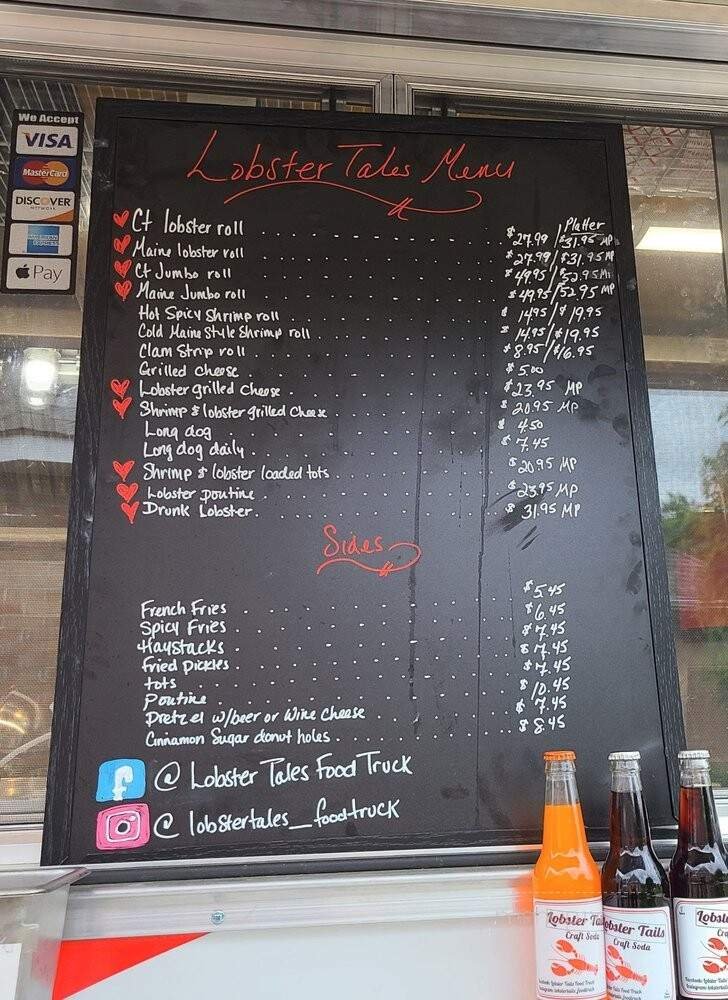 We Accept
VISA
MasterCard
DISCOVER
NETWORK
AMERICAN EXPRESS
Pay
Lobster Tales Menu
Platter
Ct lobster roll $27.99 / $31.95 MP
Maine lobster roll $27.99 / $31.95 MP
Ct Jumbo roll $49.95 / $52.95 MP
Maine Jumbo roll $49.95 / 52.95 MP
Hot Spicy Shrimp roll $14.95 / $19.95
Cold Maine Style Shrimp roll $14.95 / $19.95
Clam Strip roll $8.95 / $16.95
Grilled cheese $5.00
Lobster grilled cheese $23.95 MP
Shrimp & lobster grilled cheese $20.95 MP
Long dog $4.50
Long dog daily $7.45
Shrimp & lobster loaded tots $20.95 MP
Lobster poutine $23.95 MP
Drunk Lobster $31.95 MP
Sides
French Fries $5.45
Spicy Fries $6.45
Haystacks $7.45
Fried Pickles $7.45
tots $7.45
Poutine $10.45
Pretzel w/beer or Wine Cheese $7.45
Cinnamon Sugar donut holes $8.45
f @ Lobster Tales Food Truck
@ lobstertales_foodtruck
Lobster Tails
Craft Soda
Lobster Tails
Craft Soda
Facebook: Lobster Tales Food Truck
Instagram: lobstertales_foodtruck